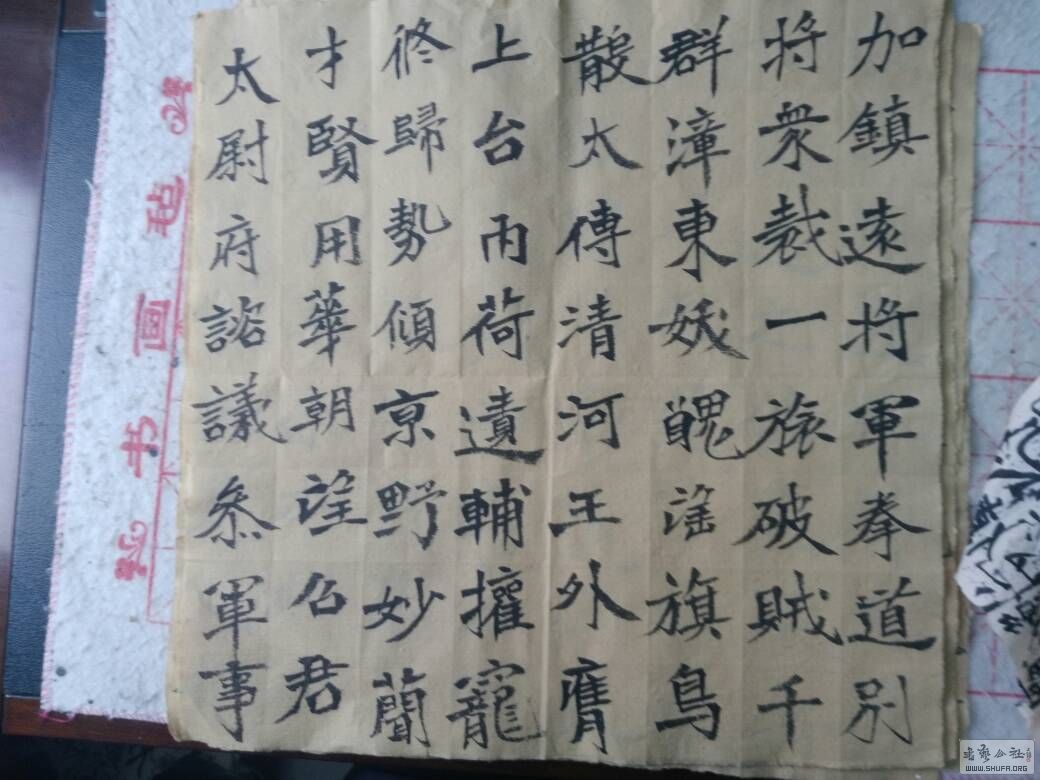 加鎮遠将軍拳道別
将衆裁一旅破賊千
群漳東妖醜謡旗鳥
散太傅清河王外膺
上台内荷遺輔權寵
修歸勢傾京野妙蕳
才賢用華朝望召君
太尉府諮議叅軍事
毡画书
书艺公社
WWW.SHUFA.ORG